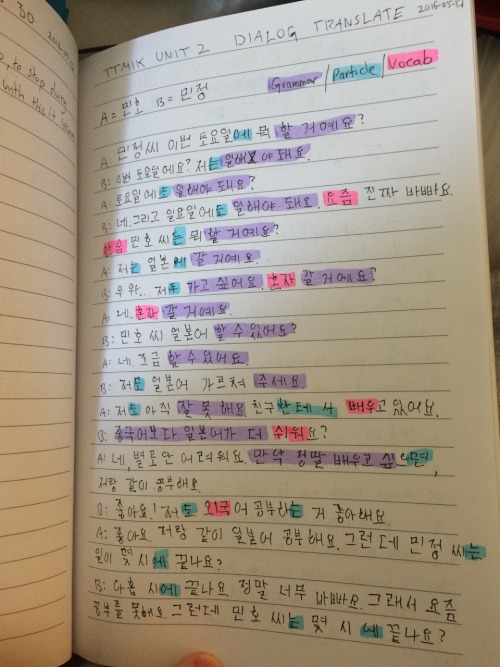 30 2016-05-
o, to stop doing
with that it
TTMIK UNIT 2 DIALOG TRANSLATE 2016-05-17
A = 민호 B = 민정 Grammar / Particle / Vocab
A: 민정씨 이번 토요일에 뭐 할 거예요?
B: 이번 토요일에요? 저는 일해야 돼요.
A: 토요일에도 일해야 돼요?
B: 네. 그리고 일요일에도 일해야 돼요. 요즘 진짜 바빠요.
한숨 민호 씨는 뭐 할 거예요?
A: 저는 일본에 갈 거예요.
B: 우와.. 저도 가고 싶어요. 혼자 갈 거예요?
A: 네. 혼자 갈 거예요.
B: 민호 씨 일본어 할 수 있어요?
A: 네. 조금 할 수 있어요.
B: 저도 일본어 가르쳐 주세요.
A: 저도 아직 잘 못 해요 친구한테서 배우고 있어요.
B: 중국어보다 일본어가 더 쉬워요?
A: 네, 별로 안 어려워요. 만약 정말 배우고 싶으면,
저랑 같이 공부해요.
B: 좋아요! 저도 외국어 공부하는 거 좋아해요.
A: 좋아요. 저랑 같이 일본어 공부해요. 그런데 민정 씨는
일이 몇 시에 끝나요?
B: 아홉 시에 끝나요 정말 너무 바빠요. 그래서 요즘
공부를 못해요. 그런데 민호 씨는 몇 시에 끝나요?